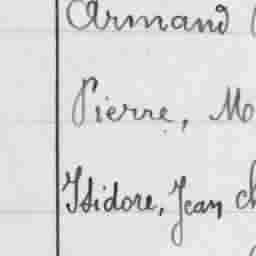 Armand
Pierre, M
Isidore, Jean ch